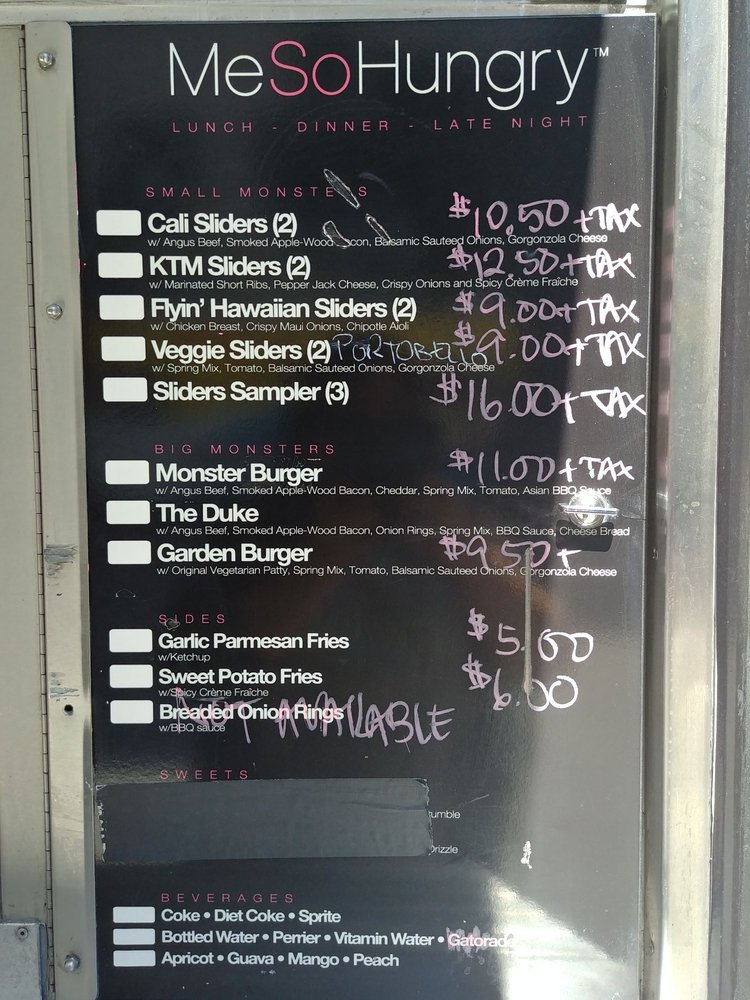 MeSoHungry™
LUNCH - DINNER - LATE NIGHT
SMALL MONSTERS
Cali Sliders (2) $10.50 + TAX
w/ Angus Beef, Smoked Apple-Wood Bacon, Balsamic Sauteed Onions, Gorgonzola Cheese
KTM Sliders (2) $12.50 + TAX
w/ Marinated Short Ribs, Pepper Jack Cheese, Crispy Onions and Spicy Crème Fraîche
Flyin' Hawaiian Sliders (2) $9.00 + TAX
w/ Chicken Breast, Crispy Maui Onions, Chipotle Aioli
Veggie Sliders (2) PORTOBELLO $9.00 + TAX
w/ Spring Mix, Tomato, Balsamic Sauteed Onions, Gorgonzola Cheese
Sliders Sampler (3) $16.00 + TAX
BIG MONSTERS
Monster Burger $11.00 + TAX
w/ Angus Beef, Smoked Apple-Wood Bacon, Cheddar, Spring Mix, Tomato, Asian BBQ Sauce
The Duke
w/ Angus Beef, Smoked Apple-Wood Bacon, Onion Rings, Spring Mix, BBQ Sauce, Cheese Bread
Garden Burger $9.50 +
w/ Original Vegetarian Patty, Spring Mix, Tomato, Balsamic Sauteed Onions, Gorgonzola Cheese
SIDES
Garlic Parmesan Fries $5.00
w/Ketchup
Sweet Potato Fries $6.00
w/Spicy Crème Fraîche
Breaded Onion Rings
NOT AVAILABLE
w/BBQ sauce
SWEETS
BEVERAGES
Coke • Diet Coke • Sprite
Bottled Water • Perrier • Vitamin Water • Gatorade
Apricot • Guava • Mango • Peach